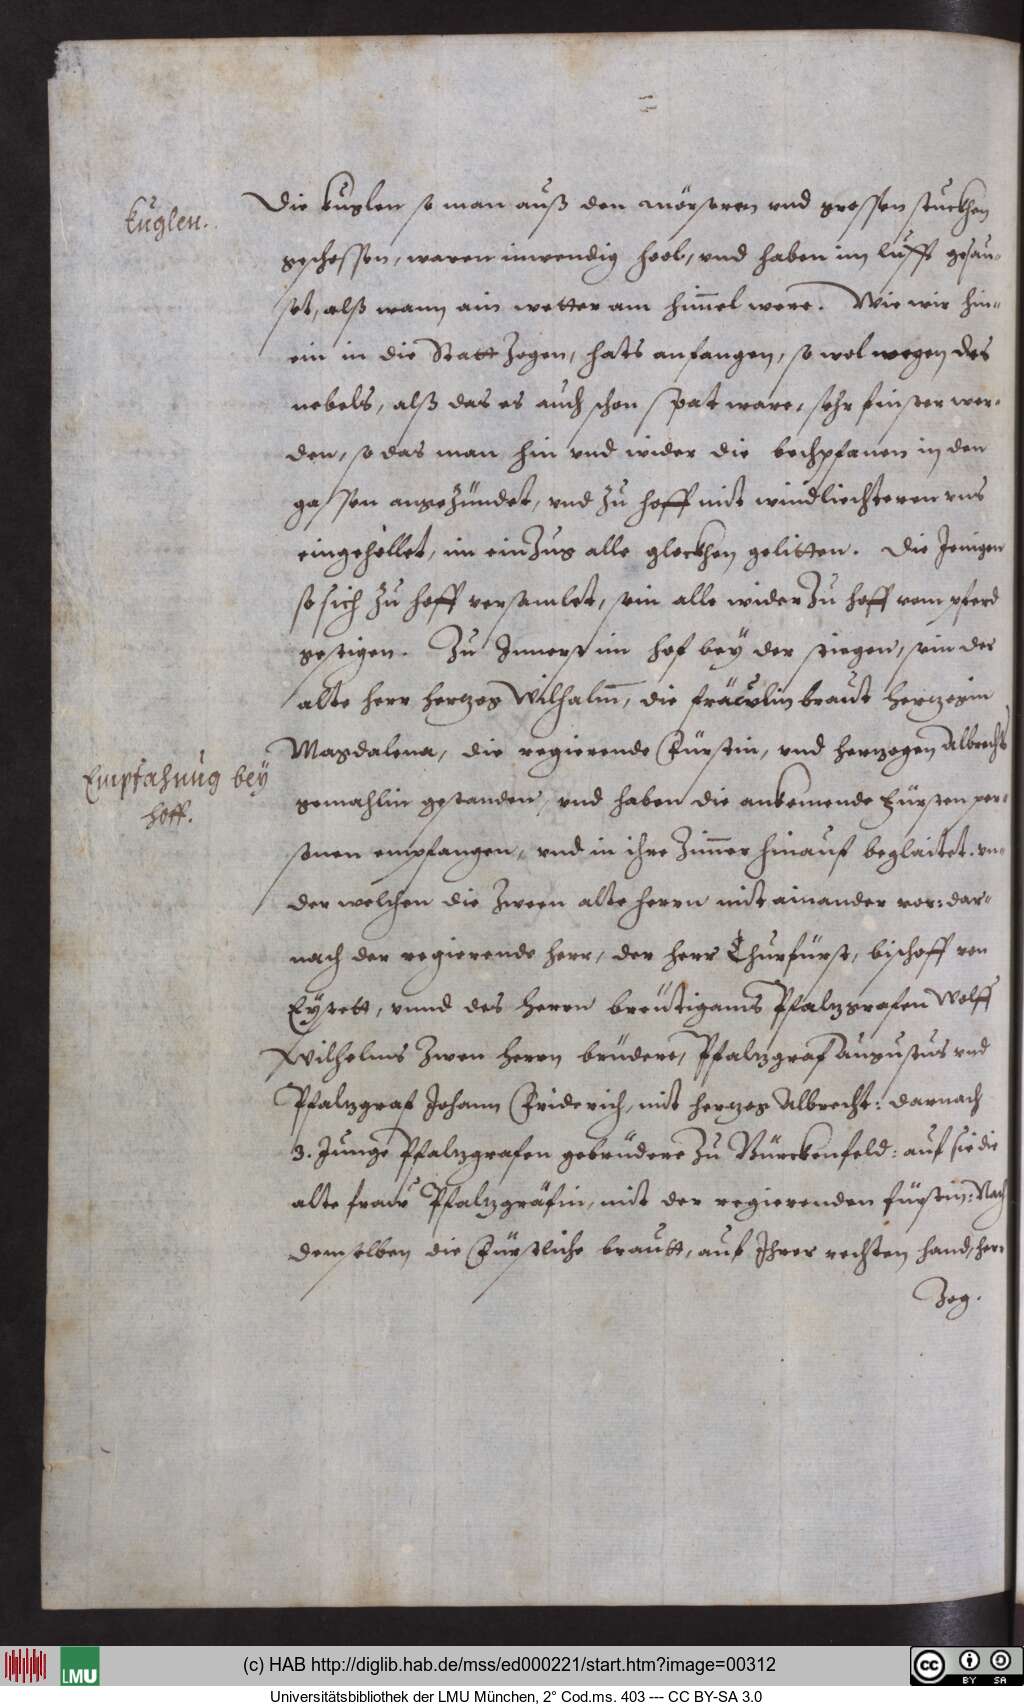 Kuglen.
Die kuglen so man auß den mörseren vnd grossen stuckhen
geschossen, waren inwendig hool, vnd haben im lufft gesau-
set, alß wann ain wetter am himel were. Wie wir hin-
ein in die Statt Zogen, hats anfangen, so wol wegen des
nebels, alß das es auch schon spat ware, sehr finster wer-
den, so das man hin vnd wider die bechpfanen in den
gassen angezündet, vnd zu hoff mit windliechteren vns
eingehellet, im einZug alle glockhen gelitten. Die Jenigen
so sich zu hoff versamlet, sein alle wider Zu hoff vom pferd
gestigen. Zu Innerst im hof bey der stiegen, sein der
alte herr hertzog Wilhalm, die fräwlin braut hertzogin
Magdalena, die regierende Fürstin, vnd hertzogen Albrechts
Empfahung bey
hoff.
gemahlin gestanden, vnd haben die ankomende Fürsten per-
sonen empfangen, vnd in ihre Zimer hinauf beglaitet. vn-
der welchen die Zween alte herrn mit ainander vor: dar-
nach der regierende herr, der herr Churfürst, bischoff von
Eystett, vnnd des herrn breütigams Pfaltzgrafen Wolff
Wilhelms Zwen herrn brüdere, Pfaltzgraf Augustus vnd
Pfaltzgraf Johann Friderich, mit hertzog Albrecht: darnach
3. Junge Pfaltzgrafen gebrüdere Zu Bürckenfeld: auf sie die
alte fraw Pfaltzgräfin, mit der regierenden fürstin: Nach
demselben die Fürstliche brautt, auf Ihrer rechten hand, her-
Zog.
(c) HAB http://diglib.hab.de/mss/ed000221/start.htm?image=00312
LMU
cc BY SA
Universitätsbibliothek der LMU München, 2° Cod.ms. 403 --- CC BY-SA 3.0